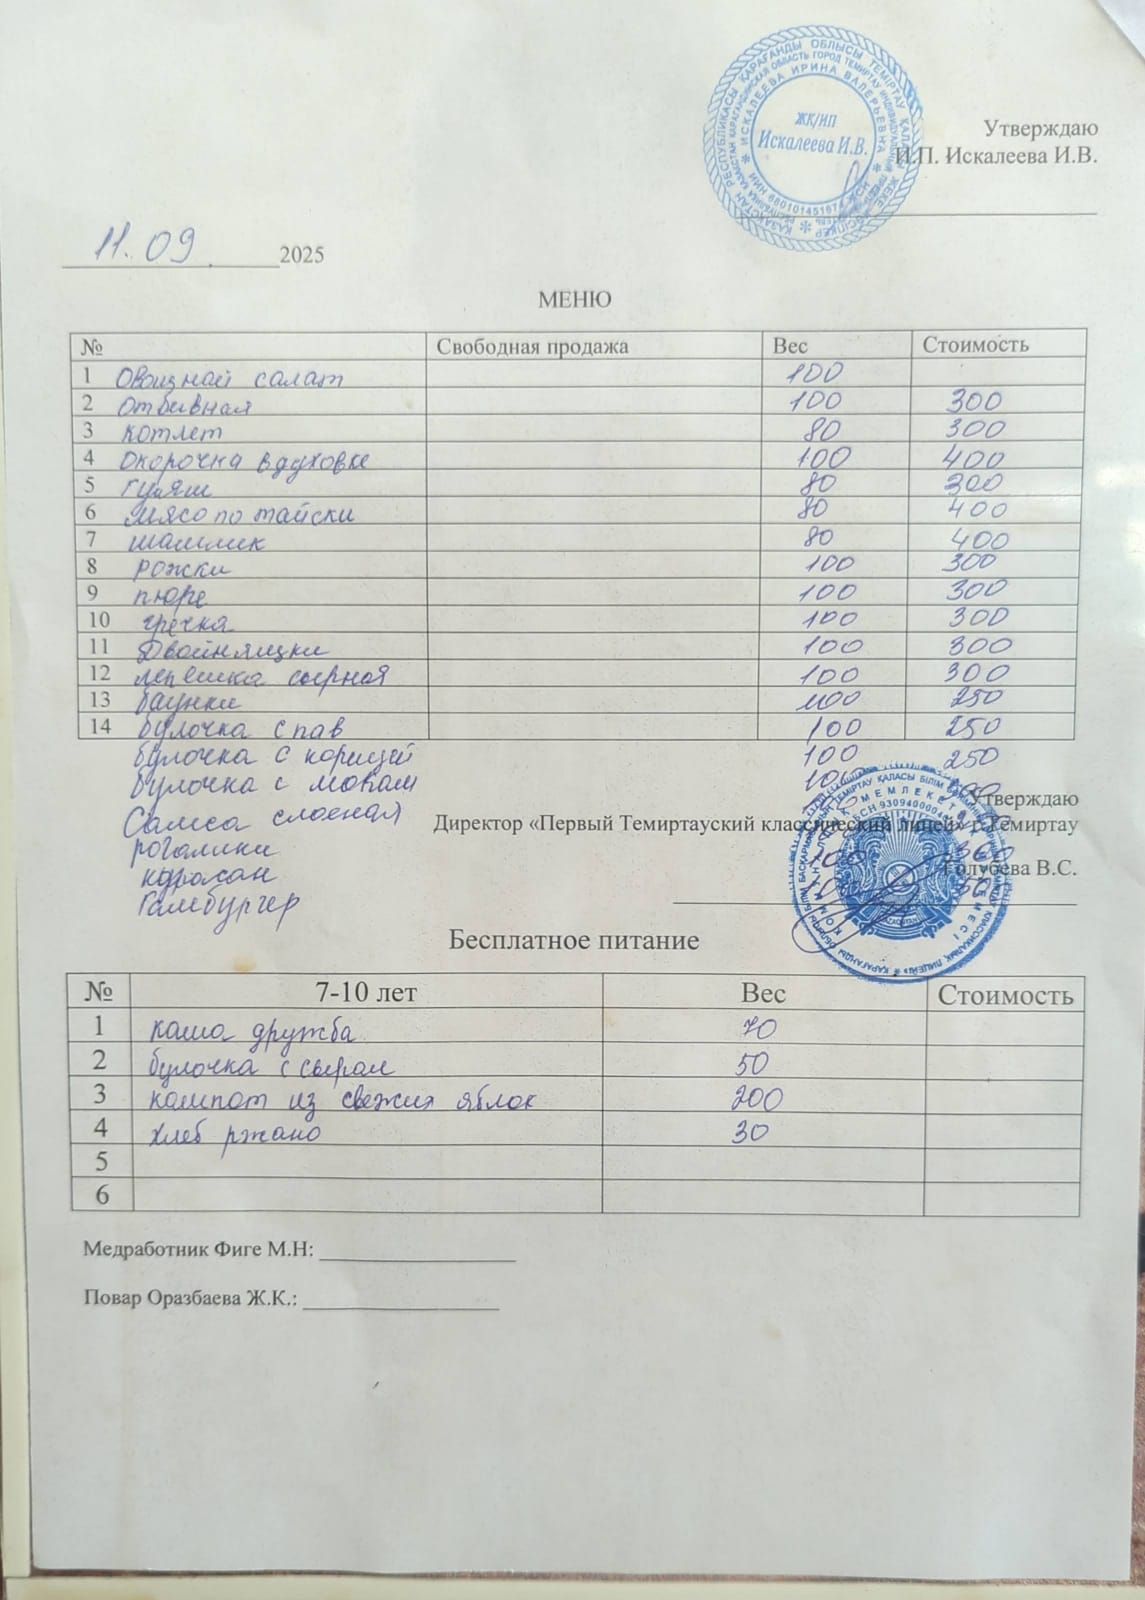 ЖК/ИП
Искалеева И.В.
ИСКАЛЕЕВА ИРИНА ВАЛЕРЬЕВНА
Утверждаю
И.П. Искалеева И.В.
11.09. 2025
МЕНЮ
№ Свободная продажа Вес Стоимость
1 Овощной салат 100
2 отбивная 100 300
3 котлет 80 300
4 окорочка в духовке 100 400
5 гуляш 80 300
6 мясо по тайски 80 400
7 шашлик 80 400
8 рожки 100 300
9 пюре 100 300
10 гречка 100 300
11 Двойняшки 100 300
12 лепешка сырная 100 300
13 баунки 100 250
14 булочка с пав 100 250
булочка с корицей 100 250
булочка с маком 100
Самса слоеная
рогалики 100 300
Гамбургер
Утверждаю
Директор «Первый Темиртауский классический лицей» г.Темиртау
Голубева В.С.
Бесплатное питание
№ 7-10 лет Вес Стоимость
1 каша дружба 70
2 булочка с сыром 50
3 компот из свежих яблок 200
4 хлеб ржано 30
5
6
Медработник Фиге М.Н: ____________
Повар Оразбаева Ж.К.: ____________